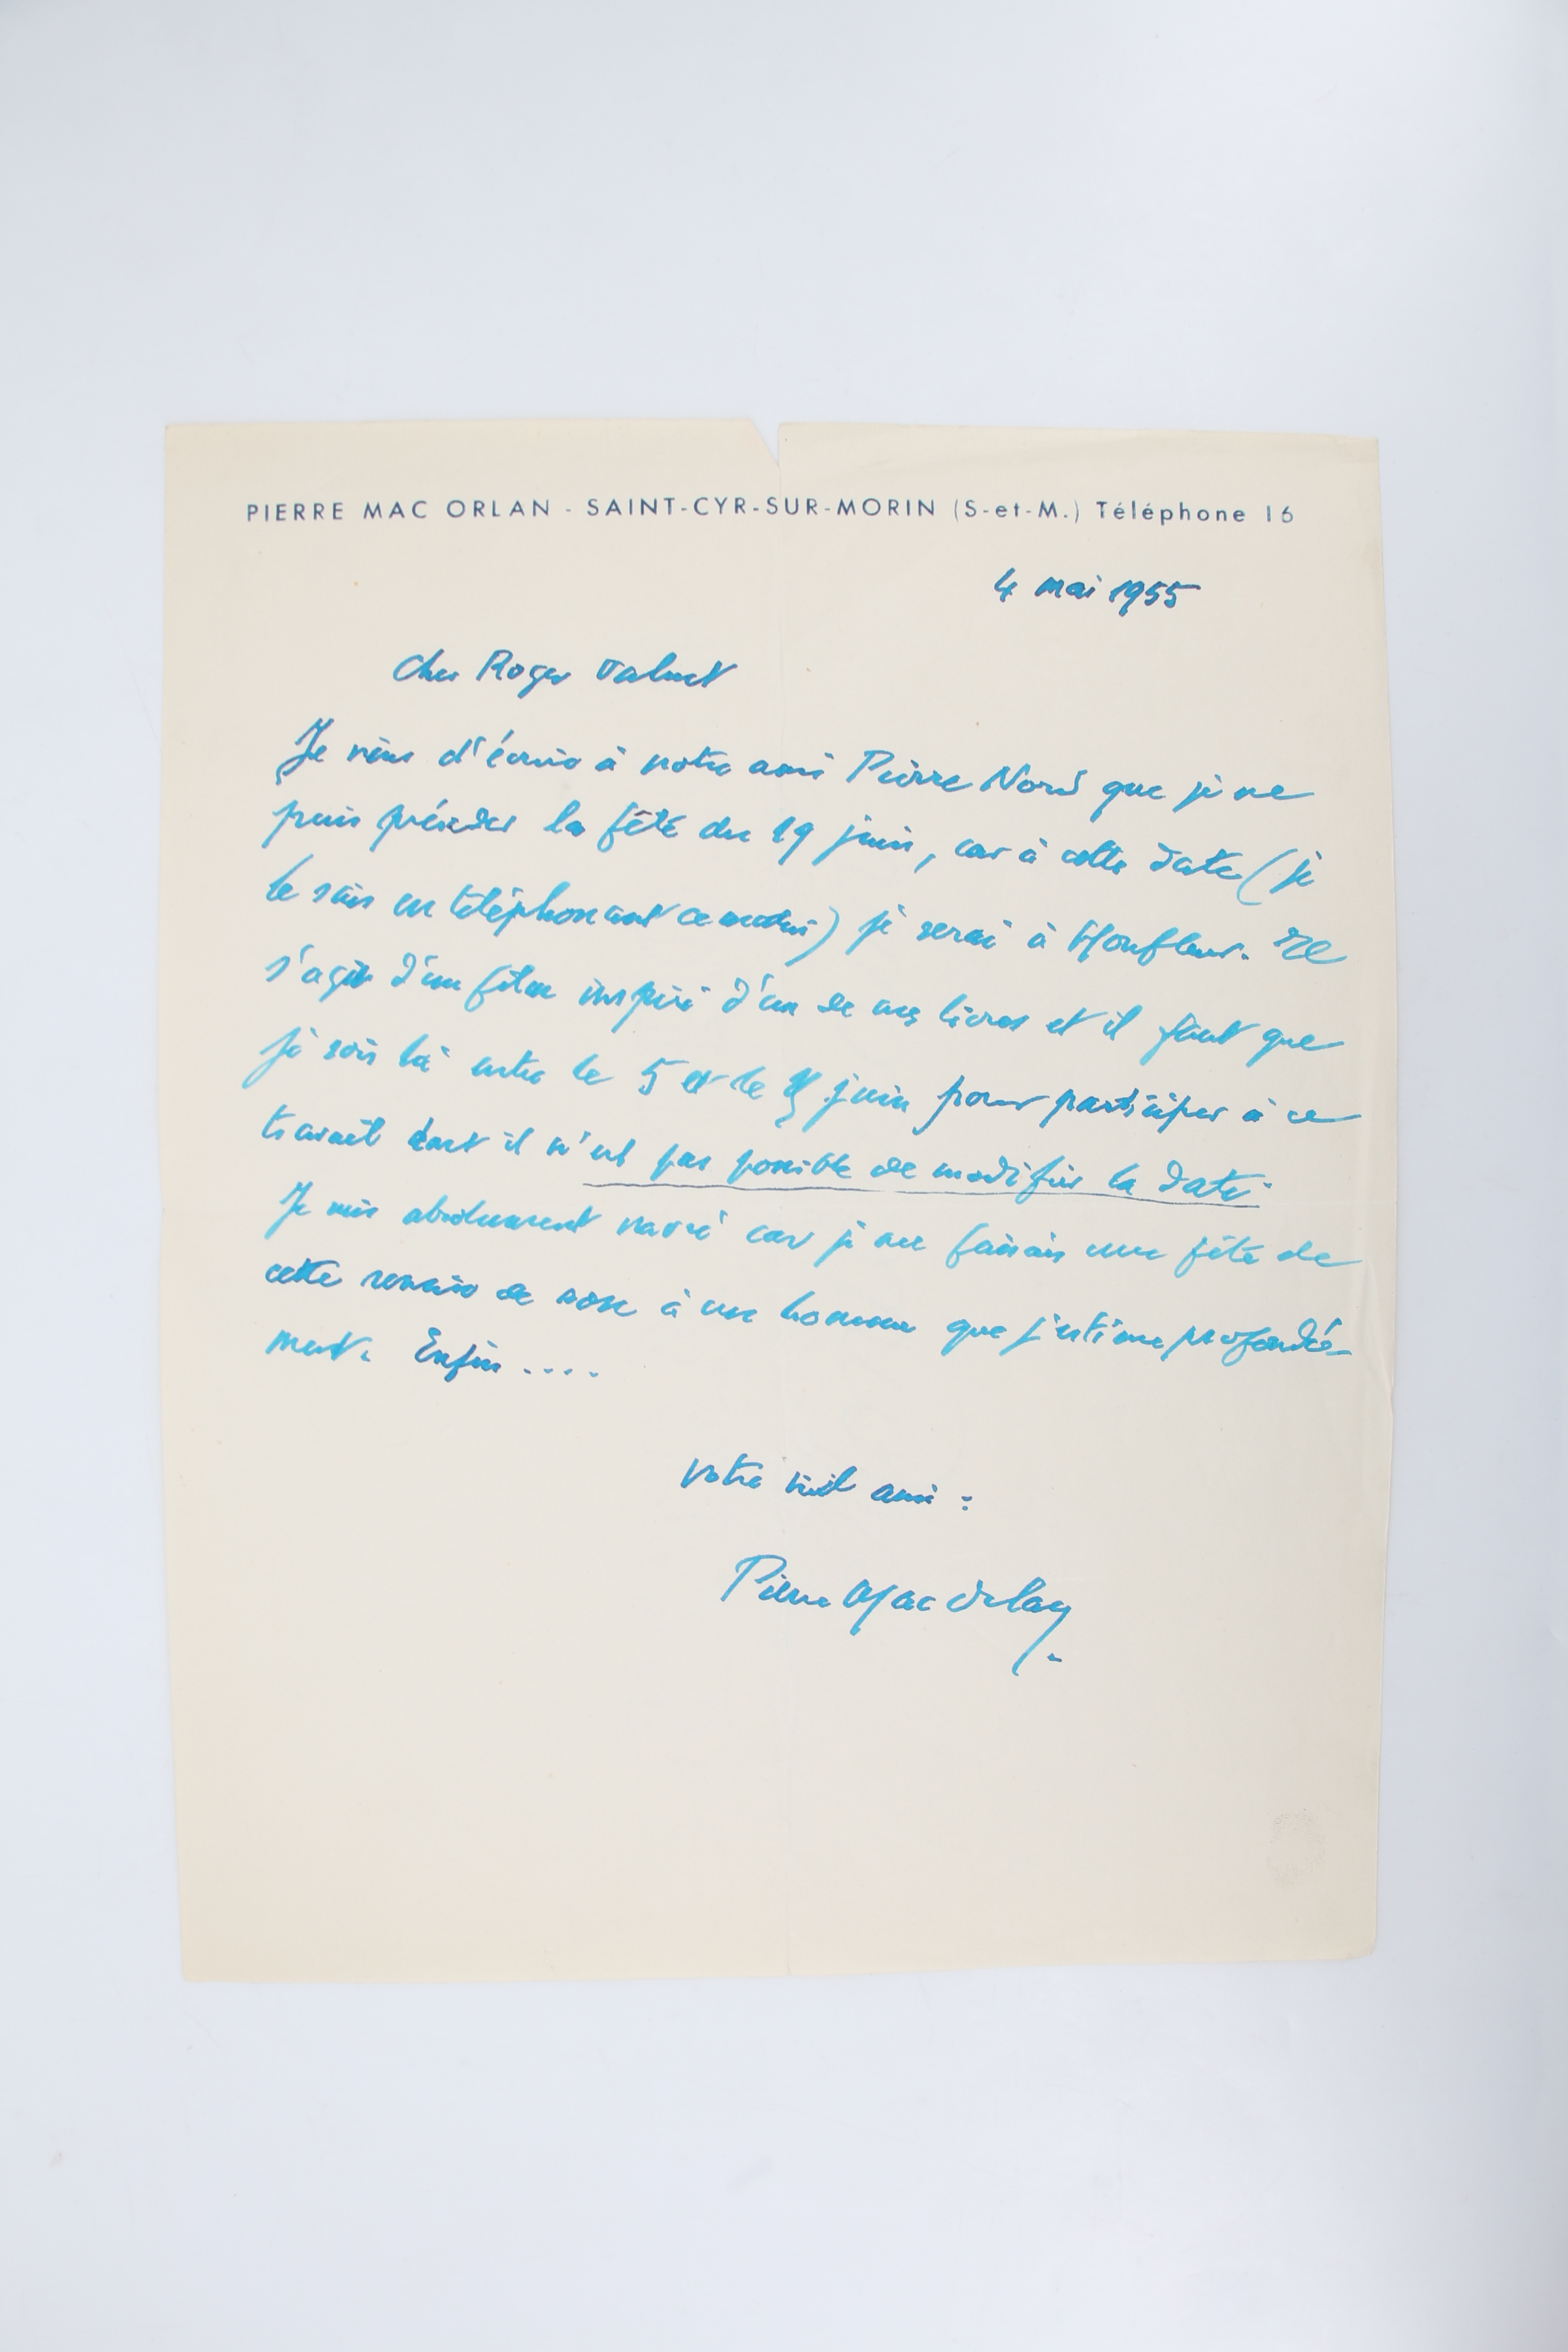 PIERRE MAC ORLAN - SAINT-CYR-SUR-MORIN (S-et-M.) Téléphone 16
4 mai 1955
Cher Roger
Je viens d'écrire à notre ami Pierre Nord que je ne
puis présider la fête du 19 juin, car à cette date (je
le sais en téléphonant ce matin) je serai à Honfleur. Il
s'agit d'un film inspiré d'un de mes livres et il faut que
je sois là entre le 5 et le juin pour participer à ce
travail dont il n'est pas possible de modifier la date.
Je suis absolument navré car je me faisais une fête de
cette remise de rose à un homme que j'estime profondé-
ment. Enfin ....
votre vieil ami :
Pierre Mac Orlan